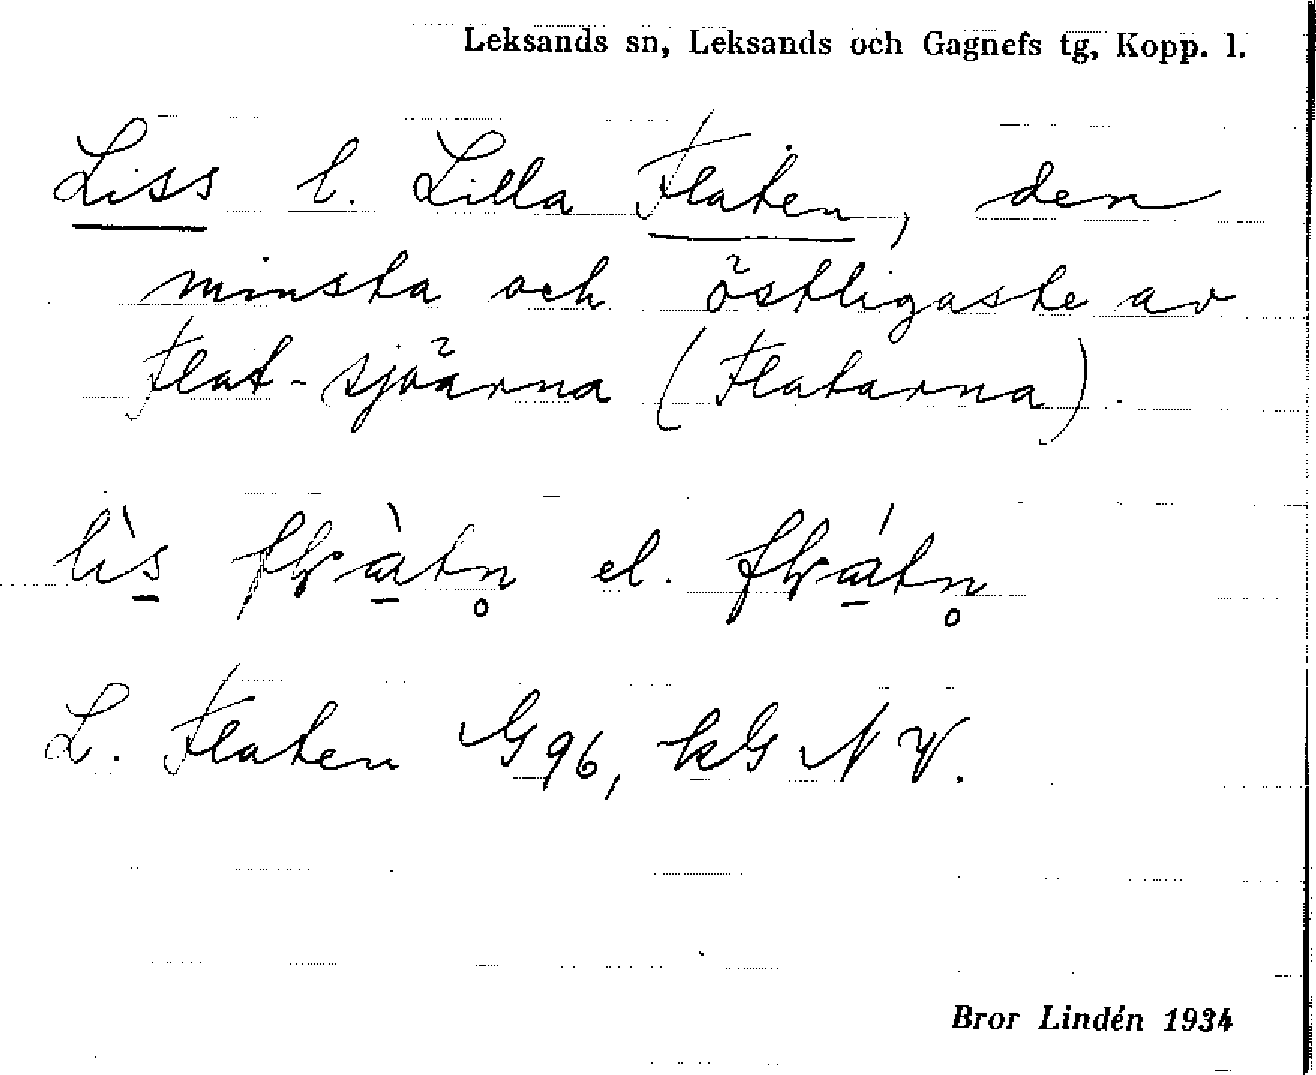 Leksands sn, Leksands och Gagnefs tg, Kopp. l.
Liss l. Lilla Flaten, den
minsta och östligaste av
Flat-sjöarna (Flatarna).
el.
L. Flaten G 96, kG NV.
Bror Lindén 1934